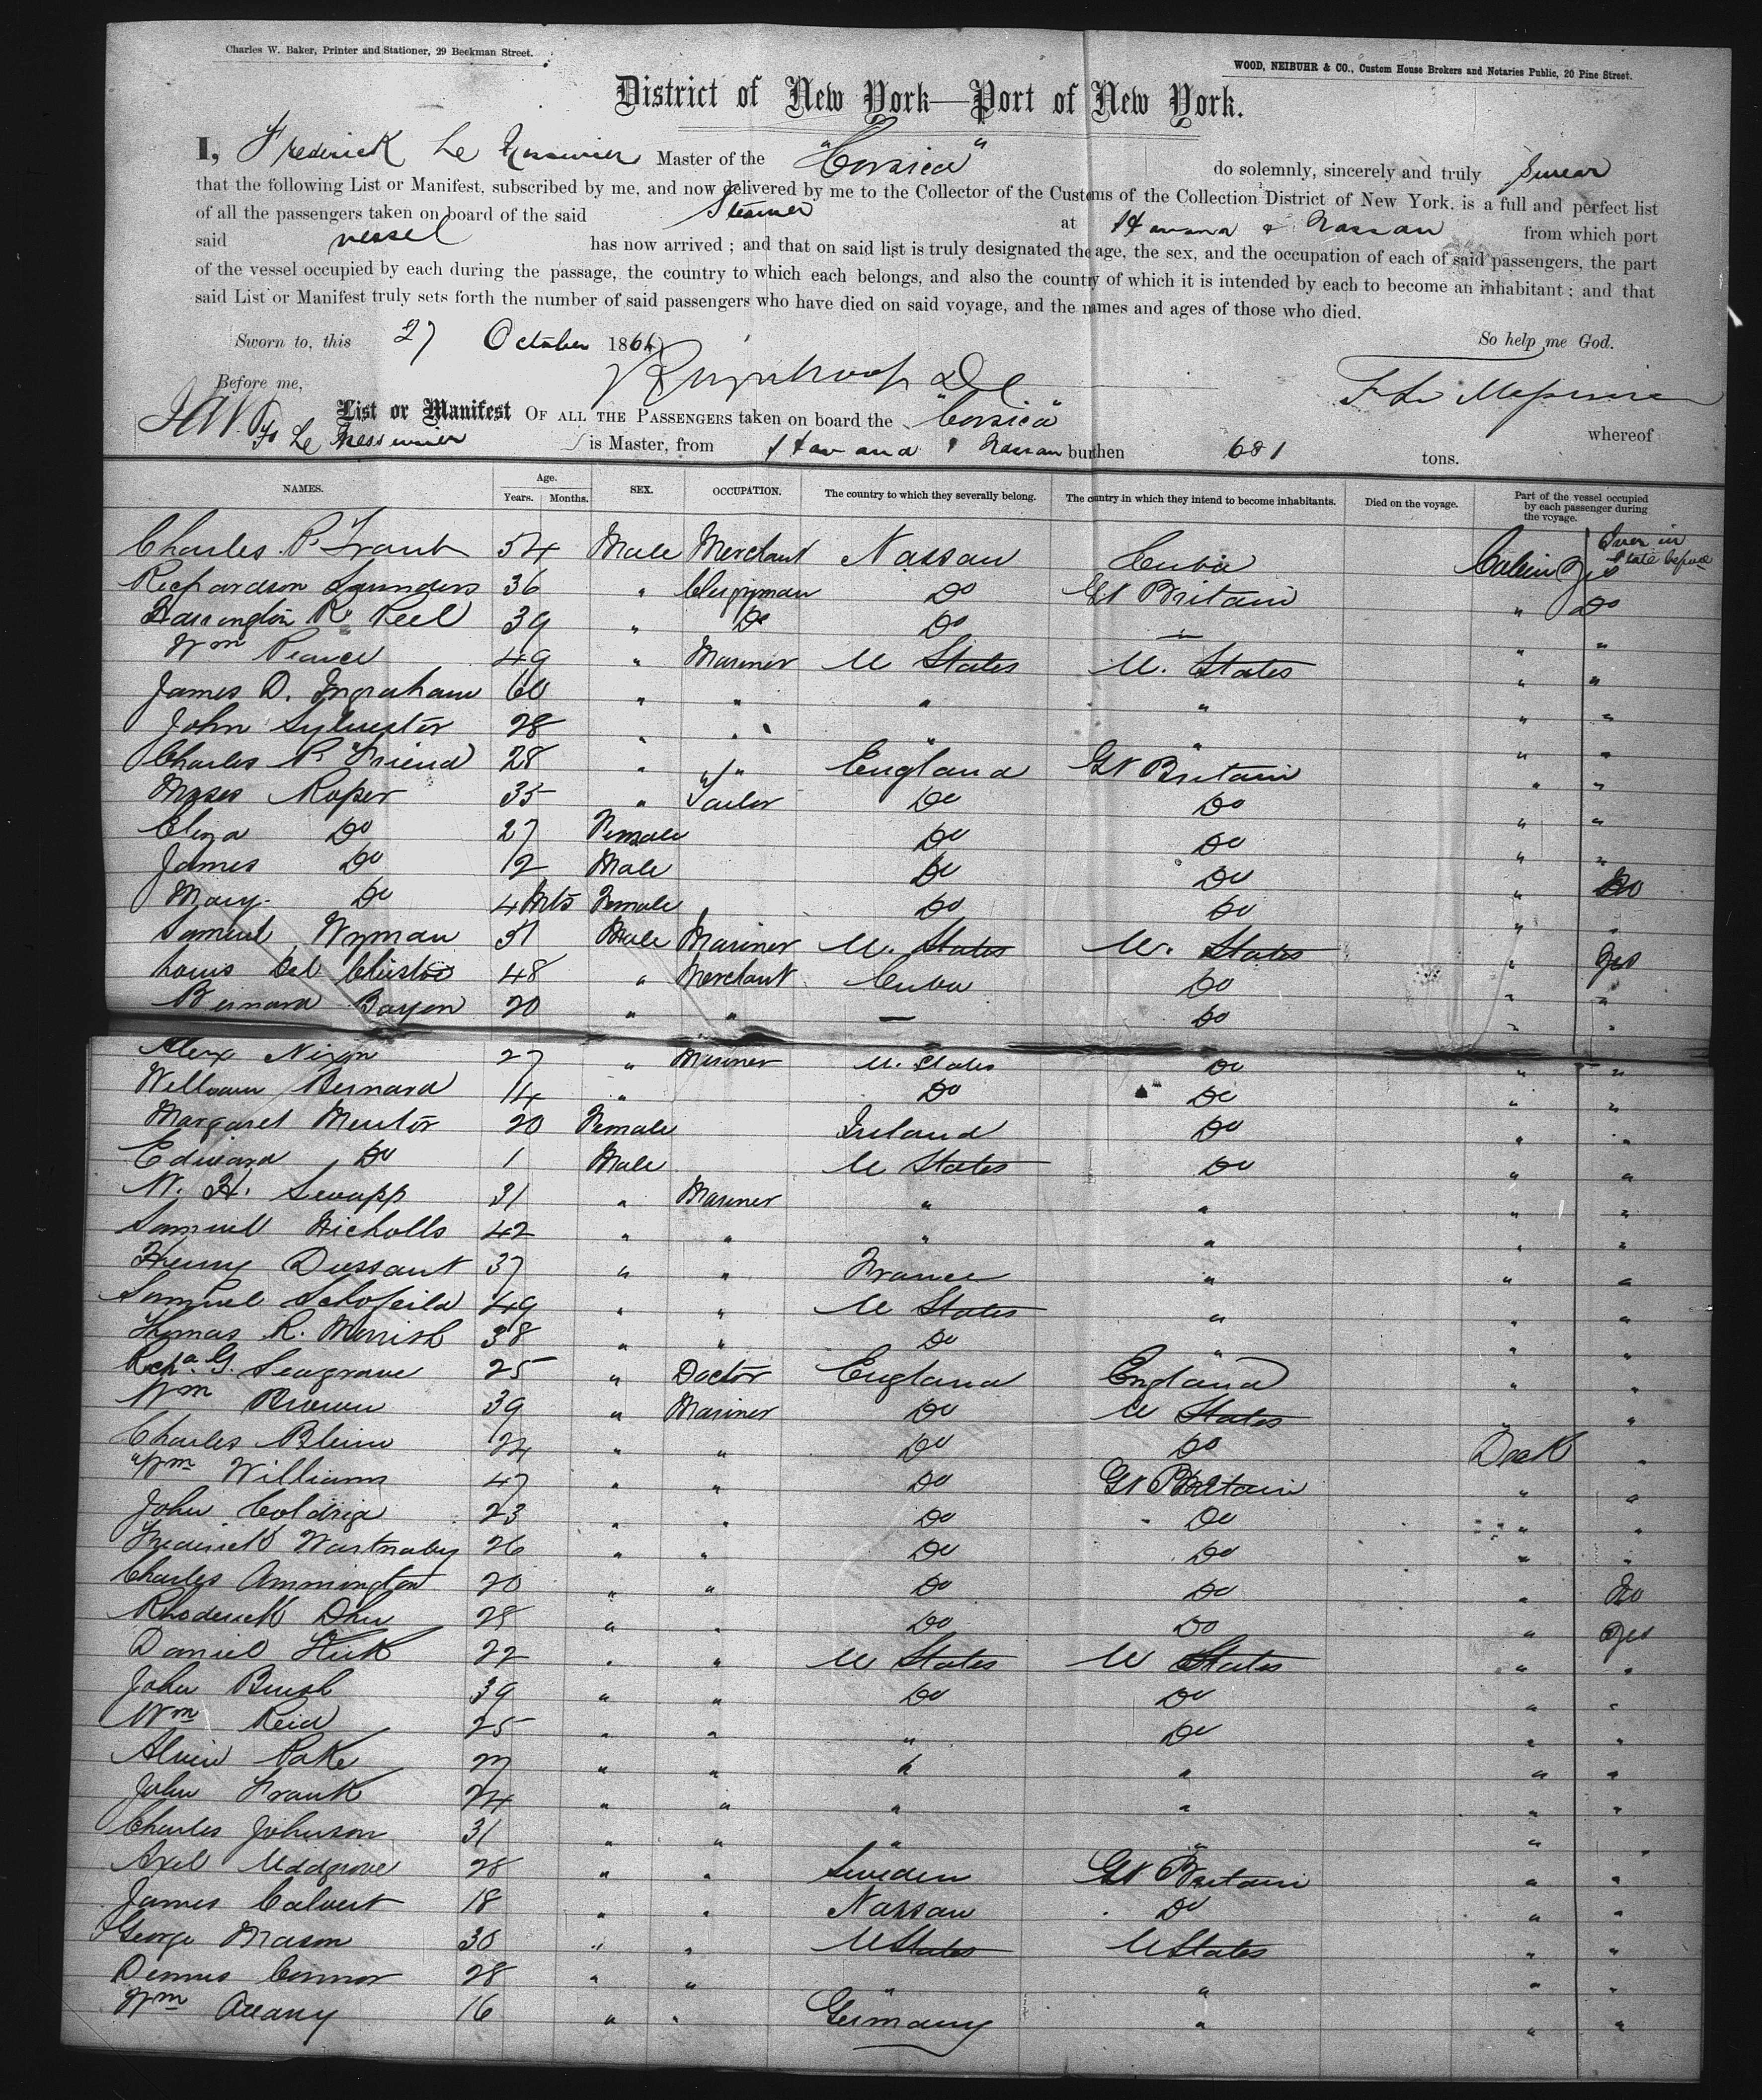 Charles W. Baker, Printer and Stationer, 29 Beekman Street.
WOOD, NEIBUHR & CO., Custom House Brokers and Notaries Public, 20 Pine Street.
District of New York—Port of New York.
I, Frederick Le Master of the "Corsica" do solemnly, sincerely and truly swear
that the following List or Manifest, subscribed by me, and now delivered by me to the Collector of the Customs of the Collection District of New York, is a full and perfect list
of all the passengers taken on board of the said Steamer at Havana & Nassau from which port
said vessel has now arrived; and that on said list is truly designated the age, the sex, and the occupation of each of said passengers, the part
of the vessel occupied by each during the passage, the country to which each belongs, and also the country of which it is intended by each to become an inhabitant; and that
said List or Manifest truly sets forth the number of said passengers who have died on said voyage, and the names and ages of those who died.
Sworn to, this 27 October 186 So help me God.
Before me,
List or Manifest OF ALL THE PASSENGERS taken on board the "Corsica" whereof
Le is Master, from Havana & Nassau burthen 681 tons.
NAMES. Age. Years. Months. SEX. OCCUPATION. The country to which they severally belong. The country in which they intend to become inhabitants. Died on the voyage. Part of the vessel occupied by each passenger during the voyage. Ever in State before
Charles P. 54 Male Merchant Nassau Cuba Cabin Yes
Richardson Saunders 36 " Clergyman Do Gt Britain " Do
R. 39 " Do Do " "
Wm Pearce 49 " Mariner U States U. States " "
James D. Ingraham 60 " " " " " "
John Sylvester 28 " " " " " "
Charles P. Friend 28 " " England Gt Britain " "
Moses Roper 35 " Tailor Do Do " "
Eliza Do 27 Female Do Do " "
James Do 12 Male Do Do " No
Mary Do 4 Mts Female Do Do " "
Samuel Wyman 31 Male Mariner U. States U. States " Yes
Louis Del 48 " Merchant Cuba Do " "
Bernard 20 " " — Do " "
Alex Nixon 27 " Mariner U. States Do " "
William Bernard 14 " Do Do " "
Margaret 20 Female Ireland Do " "
Edward Do 1 Male U States Do " "
31 " Mariner " " " "
Samuel Nicholls 42 " " " " " "
Henry Dussant 37 " " France " " "
Samuel Schofeild 49 " " U States " " "
Thomas R. 38 " " Do " " "
G. Seagrave 25 " Doctor England England " "
Wm Brown 39 " Mariner Do U States " "
Charles 24 " " Do Do Deck "
Wm Williams 47 " " Do Gt Britain " "
John 23 " " Do Do " "
Frederick Wartnaby 26 " " Do Do " "
Charles Ammington 20 " " Do Do " No
Rhoderick Dhu 28 " " Do Do " Yes
Daniel 22 " " U States U States " "
John 39 " " Do Do " "
Wm Reid 25 " " " Do " "
Pake 27 " " " " " "
John Frank 24 " " " " " "
Charles Johnson 31 " " " " " "
Axel 28 " " Sweden Gt Britain " "
James Calvert 18 " " Nassau Do " "
George Mason 30 " " U States U States " "
Dennis Connor 28 " " " " " "
Wm 16 " " Germany " " "